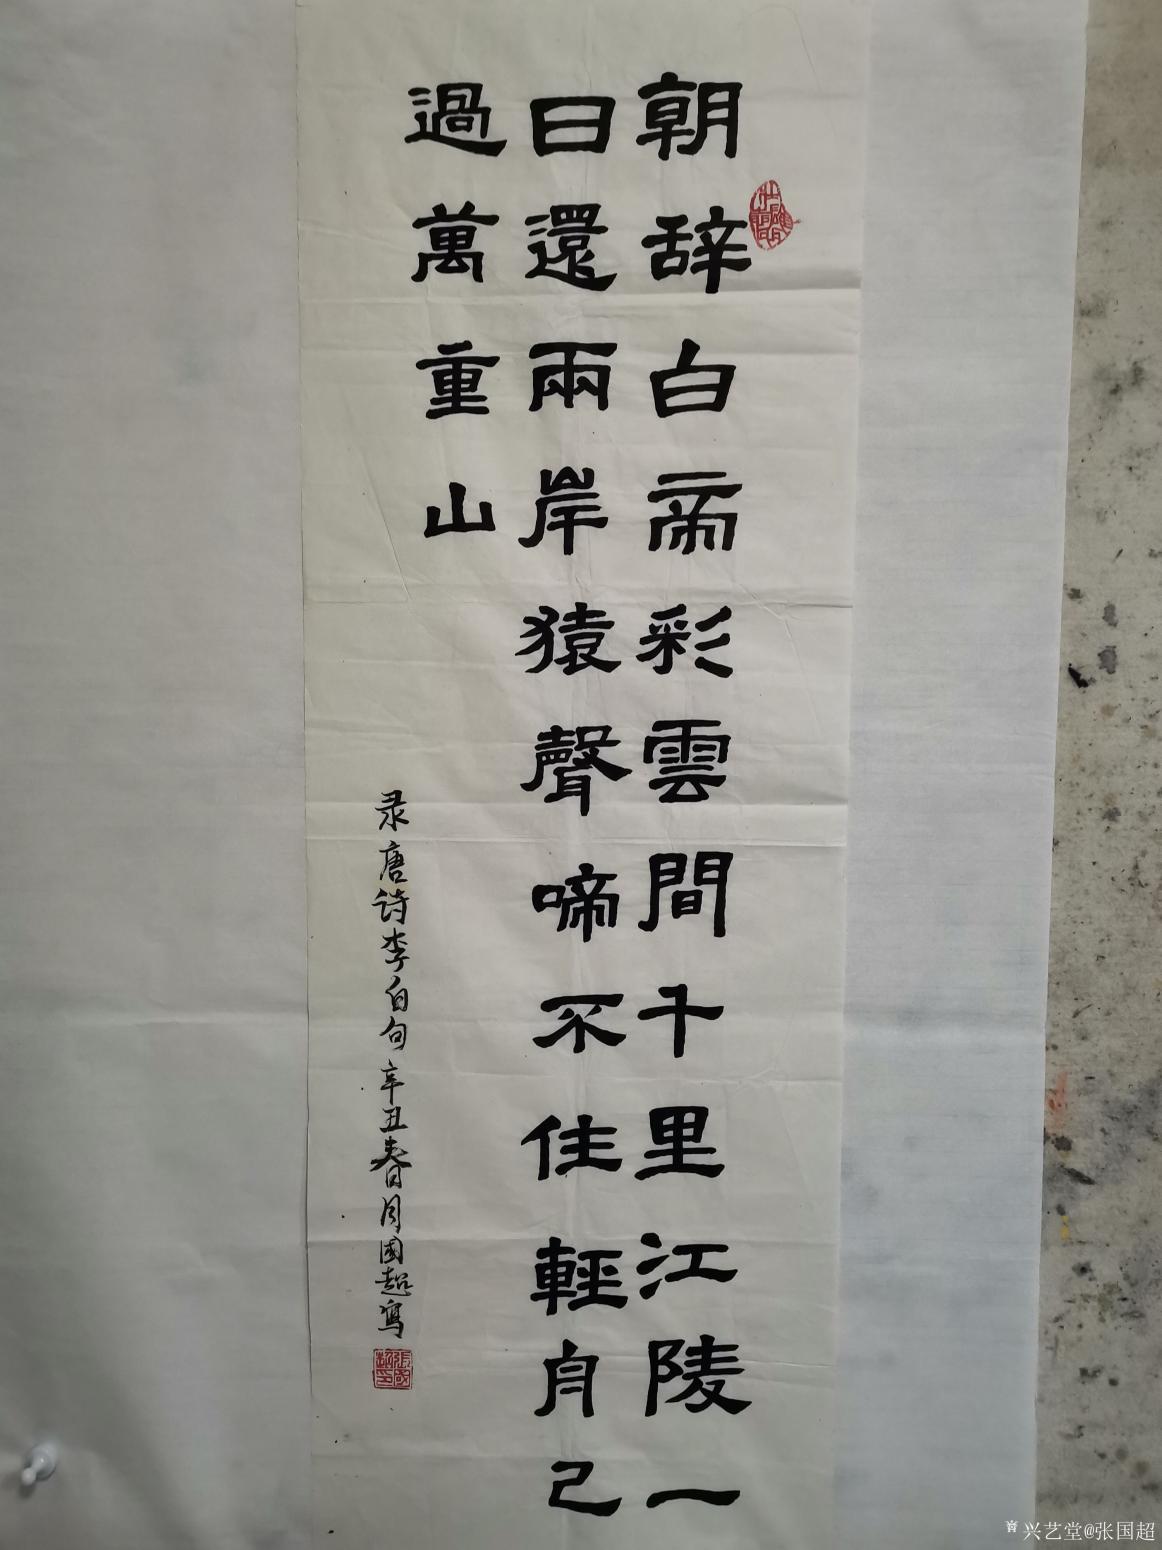 朝辞白帝彩雲間千里江陵一
日還兩岸猿聲啼不住輕舟已
過萬重山
录唐诗李白句辛丑春月國超寫
張國超印
兴艺堂@张国超